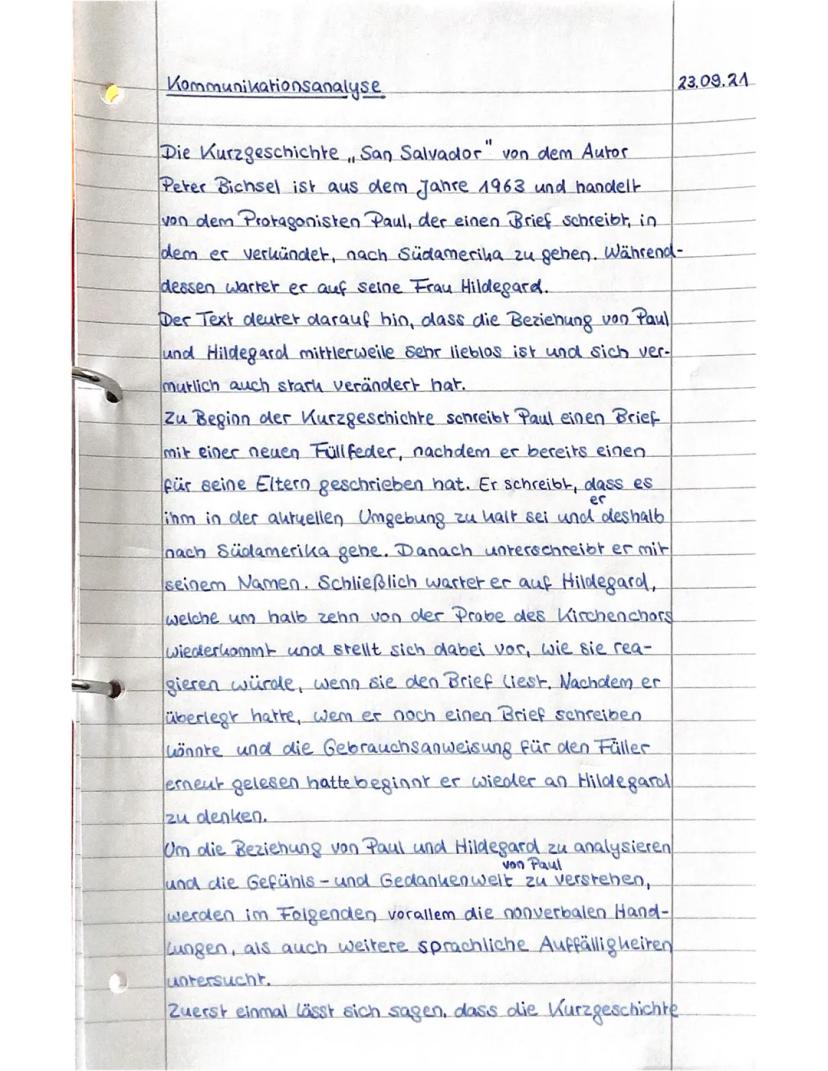 Kommunikationsanalyse
23.09.21
Die Kurzgeschichte „San Salvador" von dem Autor
Peter Bichsel ist aus dem Jahre 1963 und handelt
von dem Protagonisten Paul, der einen Brief schreibt, in
dem er verkündet, nach Südamerika zu gehen. Während-
dessen wartet er auf seine Frau Hildegard.
Der Text deutet darauf hin, dass die Beziehung von Paul
und Hildegard mittlerweile sehr lieblos ist und sich ver-
mutlich auch stark verändert hat.
Zu Beginn der Kurzgeschichte schreibt Paul einen Brief
mit einer neuen Füllfeder, nachdem er bereits einen
für seine Eltern geschrieben hat. Er schreibt, dass es
er
ihm in der aktuellen Umgebung zu kalt sei und deshalb
nach Südamerika gehe. Danach unterschreibt er mit
seinem Namen. Schließlich wartet er auf Hildegard,
welche um halb zehn von der Probe des Kirchenchors
wiederkommt und stellt sich dabei vor, wie sie rea-
gieren würde, wenn sie den Brief liest. Nachdem er
überlegt hatte, wem er noch einen Brief schreiben
könnte und die Gebrauchsanweisung für den Füller
erneut gelesen hatte beginnt er wieder an Hildegard
zu denken.
Um die Beziehung von Paul und Hildegard zu analysieren
von Paul
und die Gefühls- und Gedankenwelt zu verstehen,
werden im Folgenden vorallem die nonverbalen Hand-
lungen, als auch weitere sprachliche Auffälligkeiten
untersucht.
Zuerst einmal lässt sich sagen, dass die Kurzgeschichte